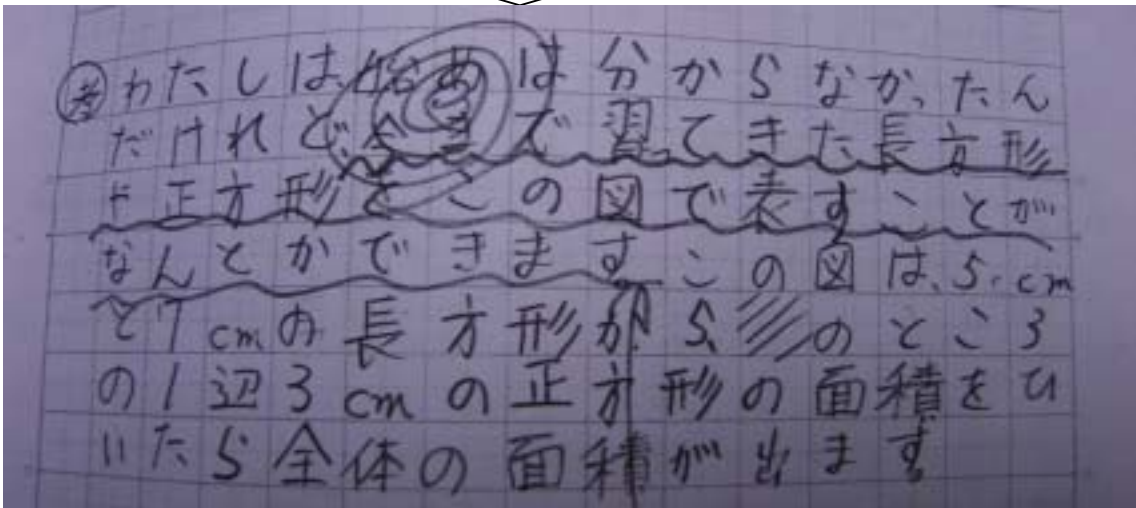 考 わたしは、始めは分からなかったん
だけれど、今まで習ってきた長方形
や正方形をこの図で表すことが
なんとかできます この図は、5cm
と7cmの長方形から、のところ
の1辺3cmの正方形の面積をひ
いたら全体の面積が出ます